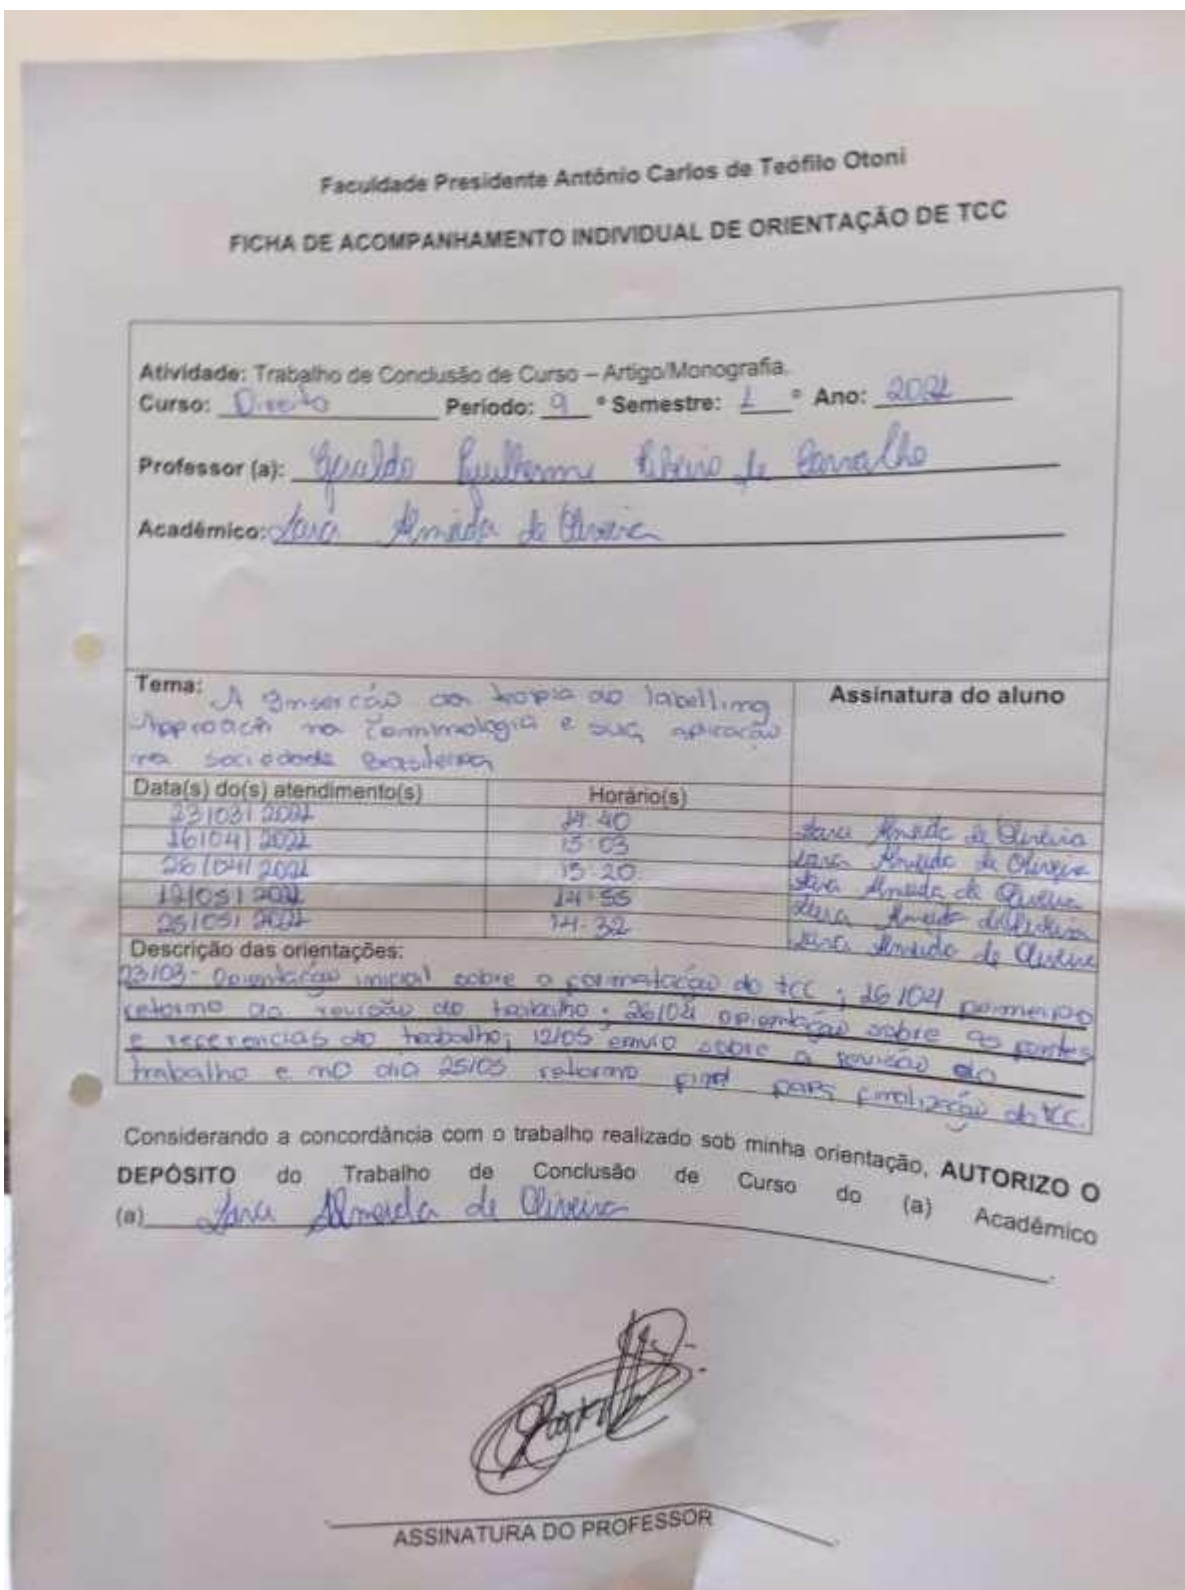 Faculdade Presidente Antônio Carlos de Teófilo Otoni
FICHA DE ACOMPANHAMENTO INDIVIDUAL DE ORIENTAÇÃO DE TCC
Atividade: Trabalho de Conclusão de Curso – Artigo/Monografia.
Curso: Direito Período: 9 º Semestre: 1 º Ano: 2021
Professor (a): Geraldo Guilherme Ribeiro de Carvalho
Acadêmico: Almeida de Oliveira
Tema: A Inserção da teoria do labelling
Approach na Criminologia e sua aplicação
na sociedade Brasileira
Assinatura do aluno
Data(s) do(s) atendimento(s) Horário(s)
23/03/2021 14:40 Almeida de Oliveira
16/04/2021 15:03 Almeida de Oliveira
26/04/2021 15:20 Almeida de Oliveira
12/05/2021 14:55 Almeida de Oliveira
25/05/2021 14:32 Almeida de Oliveira
Descrição das orientações:
23/03- Orientação inicial sobre a formatação do tcc ; 16/04 primeiro
retorno da revisão do trabalho; 26/04 orientação sobre as fontes
e referencias do trabalho; 12/05 envio sobre a revisão do
trabalho e no dia 25/05 retorno final para finalização do TCC.
Considerando a concordância com o trabalho realizado sob minha orientação, AUTORIZO O
DEPÓSITO do Trabalho de Conclusão de Curso do (a) Acadêmico
(a) Almeida de Oliveira
ASSINATURA DO PROFESSOR